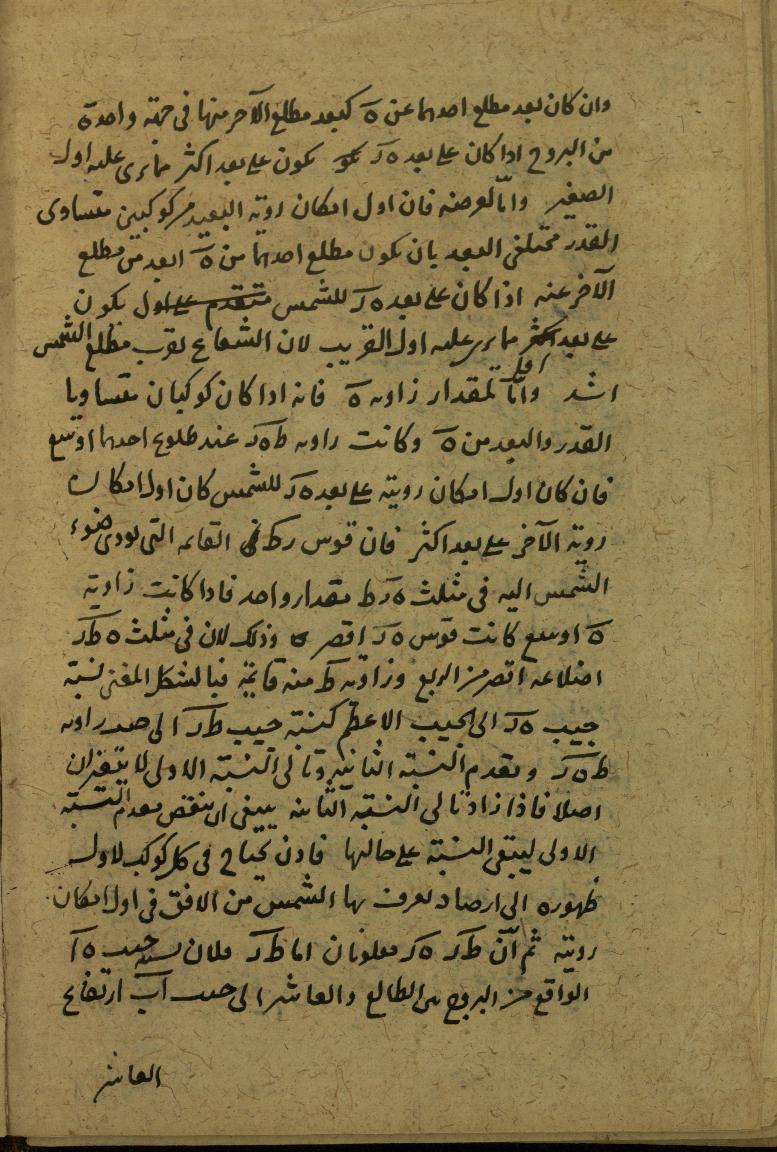 وان كان بعد مطلع احدهما عن ه كبعد مطلع الآخر منها فى جهة واحدة
من البروج اذا كان على بعد ه ر يكون على بعد اكثر مما يرى عليه اول
الصغير وامّا لعرضه فان اول امكان روية البعيد من كوكبين متساوى
القدر مختلفى البعد بان يكون مطلع احدهما من ه ابعد من مطلع
الآخر عنه اذا كان على بعد ه ر للشمس متقدم على اول يكون
على بعد اقل مما يرى عليه اول القريب لان الشعاع بقرب مطلع الشمس
اشد وامّا لمقدار زاوية ه فانه اذا كان كوكبان متساويا
القدر والبعد من ه وكانت زاوية ط ه ر عند طلوع احدهما اوسع
فان كان اول امكان رويته على بعد ه ر للشمس كان اول امكان
روية الآخر على بعد اكثر فان قوس ر ط القائمه التى يودى ضوء
الشمس اليه فى مثلث ه ر ط مقدار واحد فاذا كانت زاوية
ه اوسع كانت قوس ه ر اقصر وذلك لان فى مثلث ه ط ر
اضلاعه اقصر من الربع وزاوية ط منه قائمة فبالشكل المغنى نسبة
جيب ه ر الى الجيب الاعظم كنسبة جيب ط ر الى جيب زاوية
ط ه ر ومقدم النسبة الثانية وتالى النسبة الاولى لا يتغيران
اصلا فاذا زاد تالى النسبة الثانية ينبغى ان ينقص مقدم النسبة
الاولى ليبقى النسبة على حالها فاذن يحتاج فى كل كوكب لاول
ظهوره الى ارصاد يعرف بها الشمس من الافق فى اول امكان
رويته ثم انّ ط ر ه ر معلومان اما ط ر فلان نسبة جيب ه ا
الواقع من البروج بين الطالع والعاشر الى جيب ا ب ارتفاع
العاشر